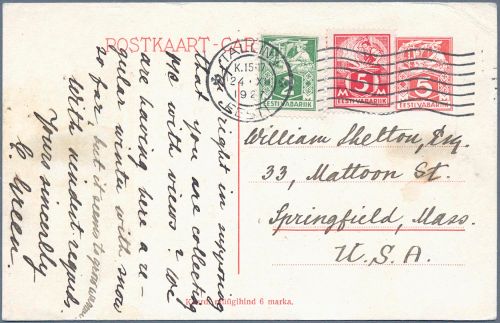 POSTKAART-CAR
TALLINN
K.15-
24 XI
192
EESTI
2
EESTI VABARIIK
M 5 M
EESTI VABARIIK
5
EESTI VABARIIK
right in supposing
that you are collecting
p/c with views? We
are having here a re-
gular winter with snow
so far, but it seems to grow warmer.
With kindest regards.
Yours sincerely
C. Green.
William Shelton, Esq.
33, Mattoon St.
Springfield, Mass.
U.S.A.
müügihind 6 marka.